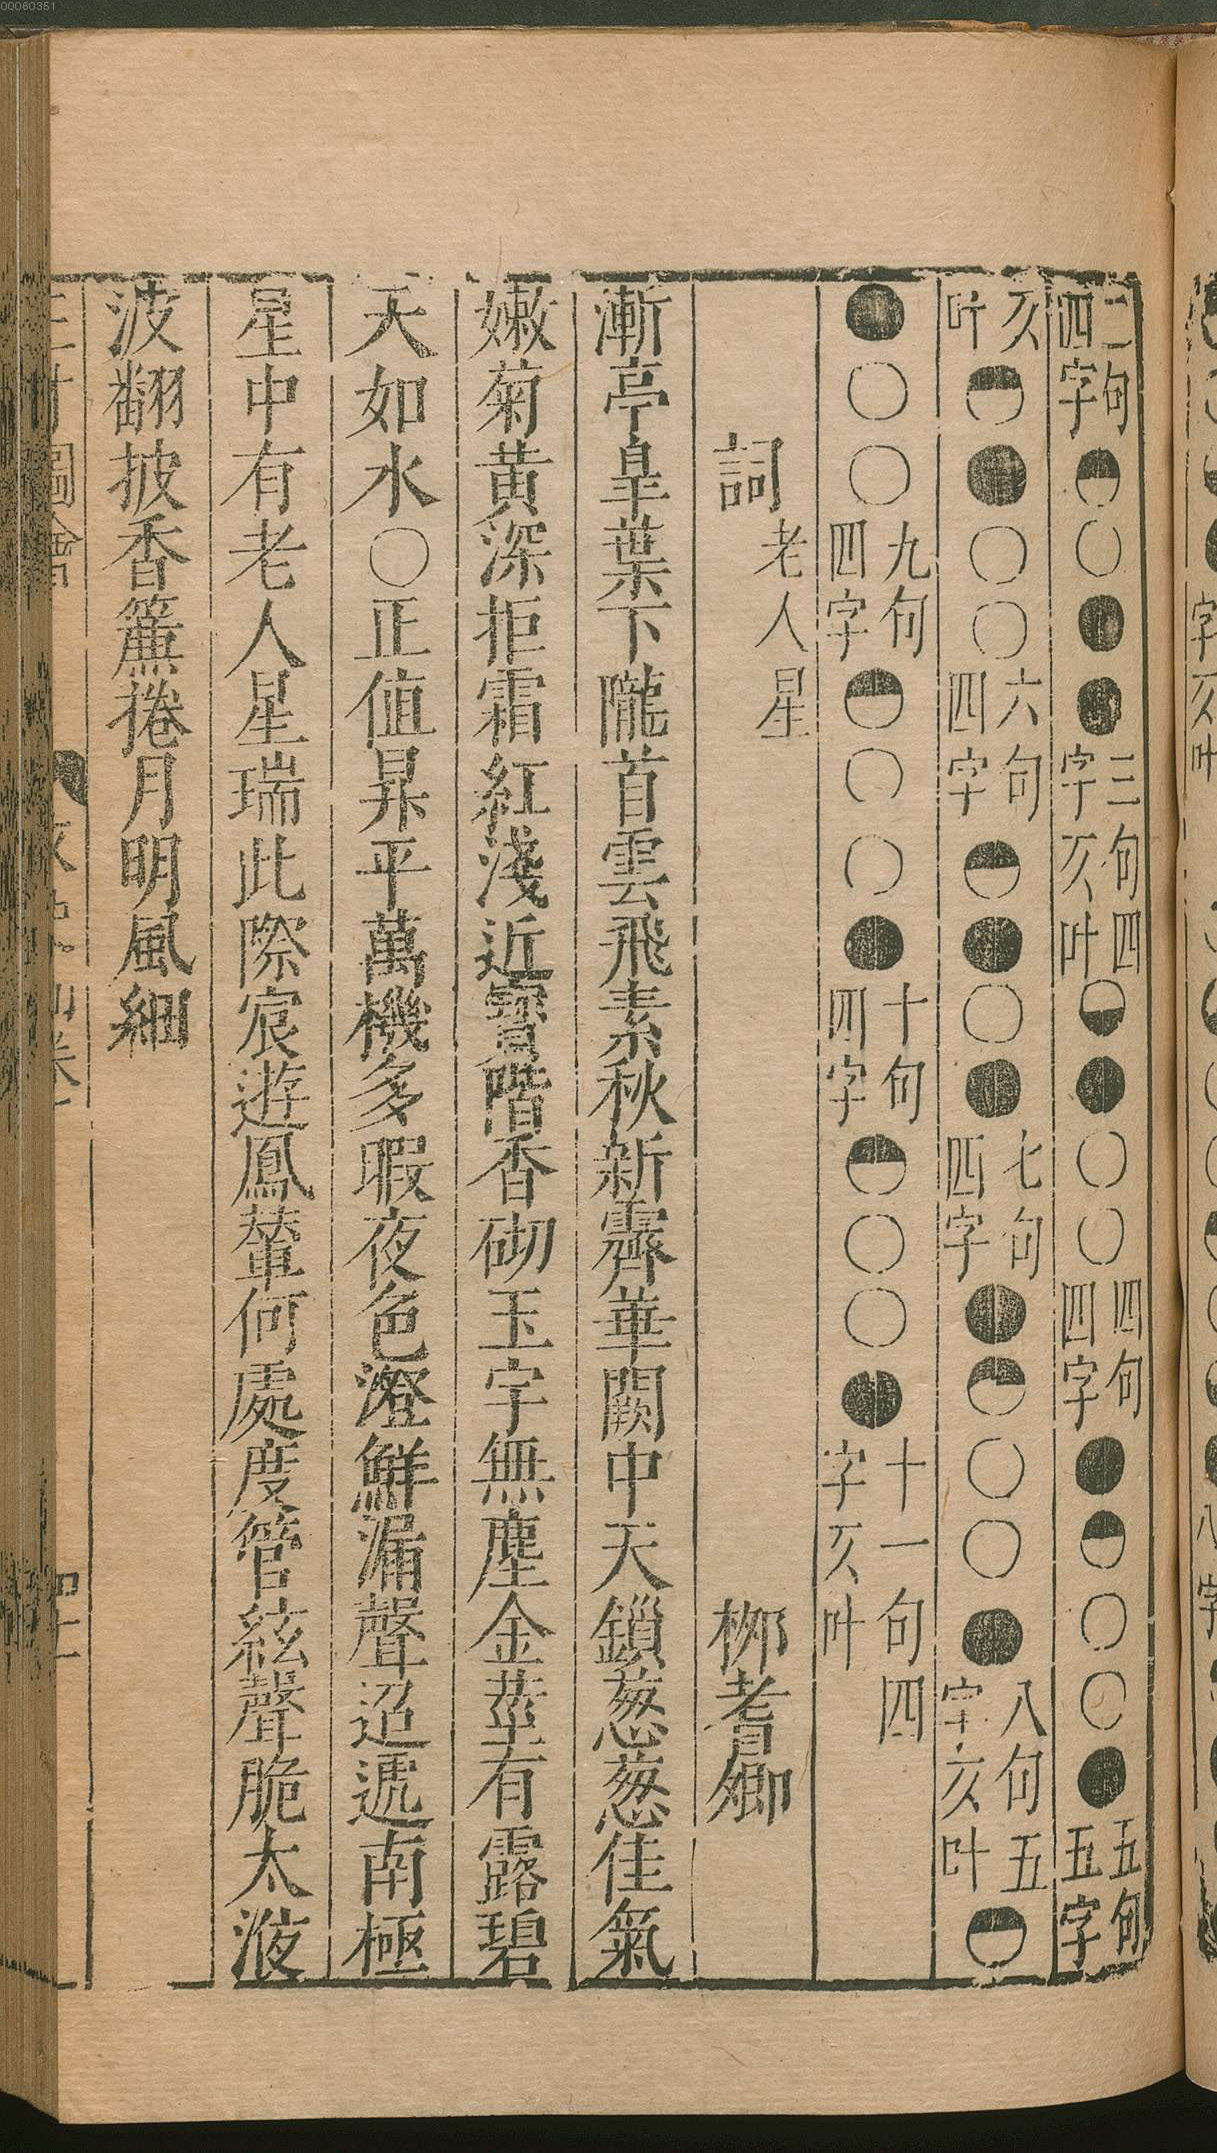 二句四字◓○●●三句四字仄叶◒●○○四句四字●◓○○●五句五字
仄叶◓●○○六句四字◓●○●七句四字●◓○○●八句五字仄叶◓
●○○九句四字◓○○●十句四字◓○○●十一句四字仄叶
詞 老人星 柳耆卿
漸亭皐葉下隴首雲飛素秋新霽華闕中天鎖葱葱佳氣
嫩菊黄深拒霜紅淺近寳階香砌玉字無塵金莖有露碧
天如水○正值昇平萬機多暇夜色澄鮮漏聲迢遞南極
星中有老人星瑞此際宸遊鳳輦何處度管絃聲脆太液
波翻披香簾捲月明風細
三才圖會